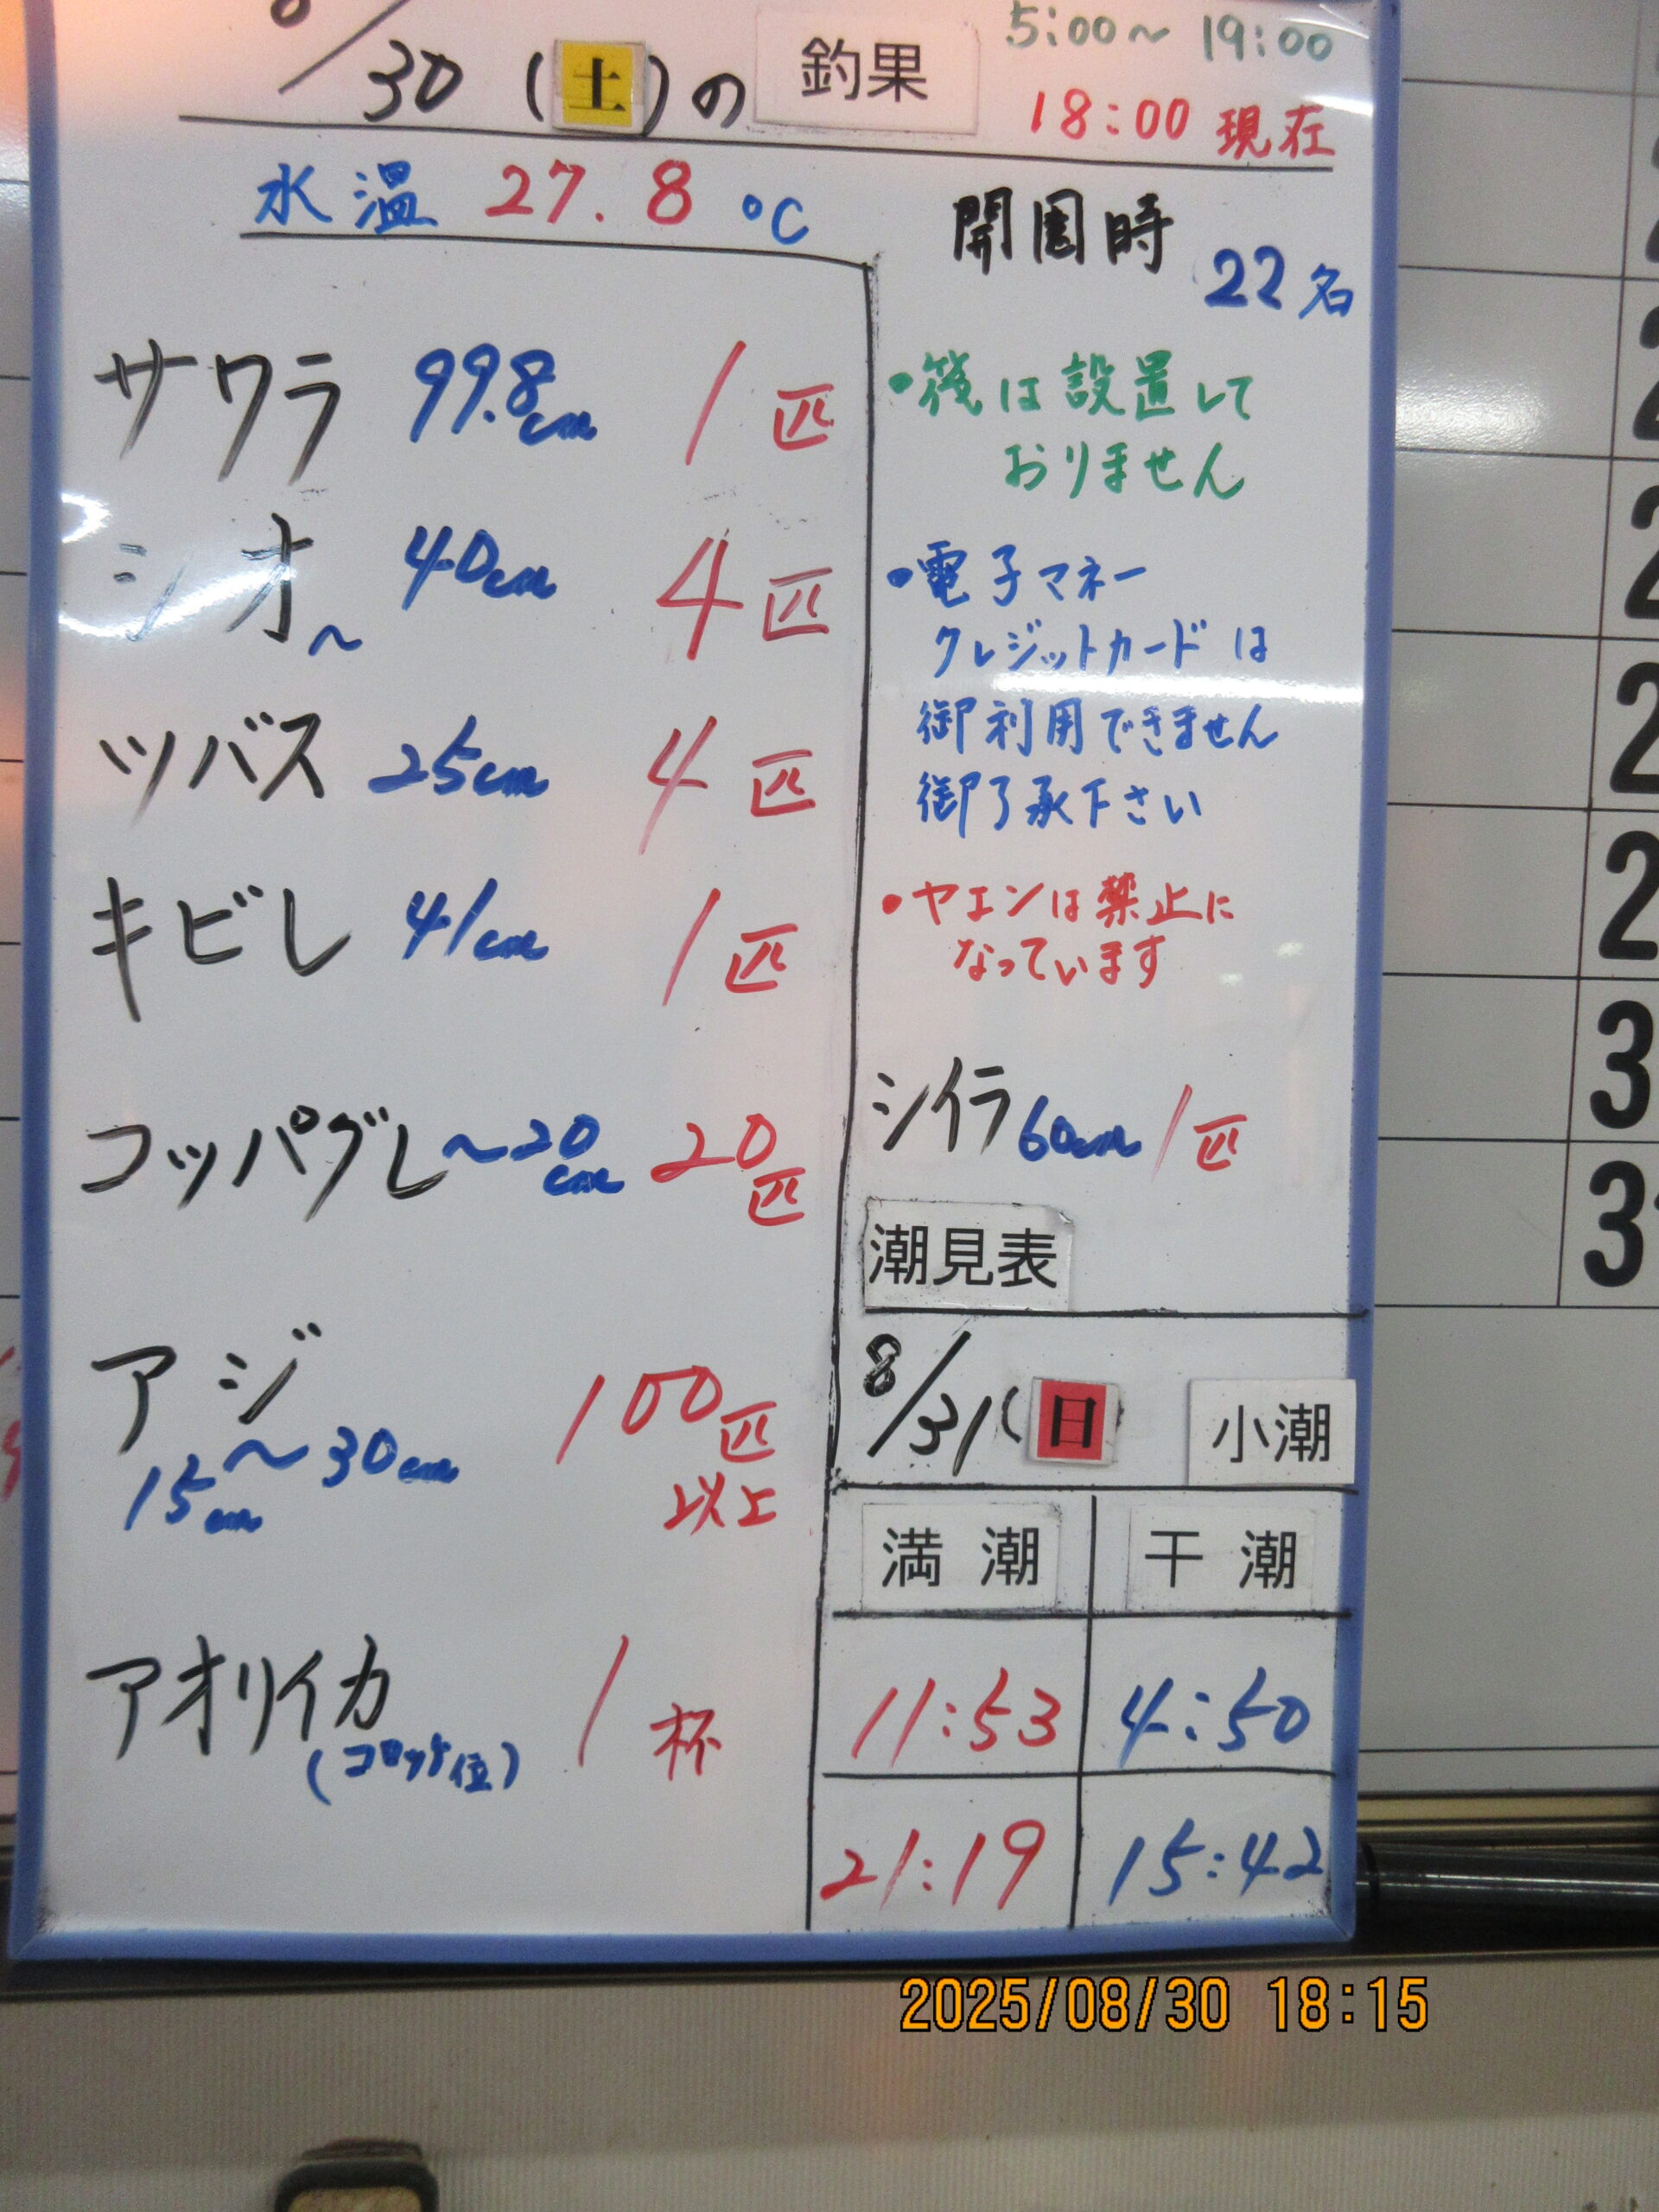 8/30(土)の 釣果
5:00~19:00
18:00 現在
水温 27.8 ℃
開園時
22名
サワラ 99.8cm 1匹
シオ ~40cm 4匹
ツバス 25cm 4匹
キビレ 41cm 1匹
コッパグレ ~20cm 20匹
アジ
15cm~30cm 100匹
以上
アオリイカ 1杯
(コロッケ位)
・筏は設置して
おりません
・電子マネー
クレジットカードは
御利用できません
御了承下さい
・ヤエンは禁止に
なっています
シイラ 60cm 1匹
潮見表
8/31(日) 小潮
満潮 干潮
11:53 4:50
21:19 15:42
2025/08/30 18:15